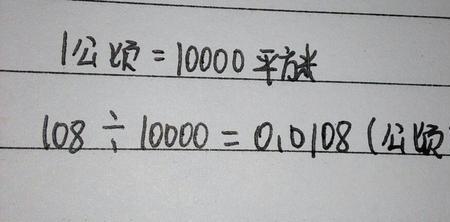 1公顷=10000平方米
108÷10000=0.0108(公顷